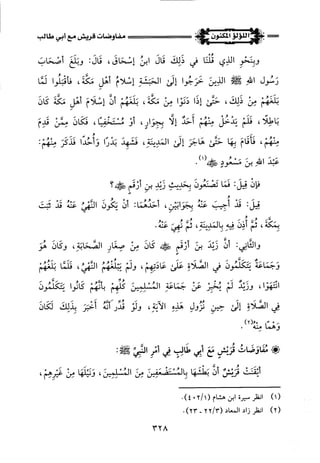 اللؤلؤ المكنون
مفاوضات قريش مع أبي طالب
وبنحو الذي قلنا في ذلك قال ابن إسحاق، قال: وبلغ أصحاب
رسول الله ﷺ الذين خرجوا إلى الحبشة إسلام أهل مكة، فأقبلوا لما
بلغهم من ذلك، حتى إذا دنوا من مكة، بلغهم أن إسلام أهل مكة كان
باطلا، فلم يدخل منهم أحد إلا بجوار، أو مستخفيا، وكان ممن قدم
منهم، فأقام بها حتى هاجر إلى المدينة، فشهد بدرا وأحدا فذكر منهم:
عبد الله بن مسعود ﷺ(١).
فإن قيل: فما تصنعون بحديث زيد بن أرقم ﷺ؟
قيل: قد أجيب عنه بجوابين، أحدهما: أن يكون النهي عنه قد ثبت
بمكة، ثم أذن فيه بالمدينة، ثم نهي عنه.
والثاني: أن زيد بن أرقم ﷺ كان من صغار الصحابة، وكان هو
وجماعة يتكلمون في الصلاة على عادتهم، ولم يبلغهم النهي، فلما بلغهم
انتهوا، وزيد لم يخبر عن جماعة المسلمين كلهم بأنهم كانوا يتكلمون
في الصلاة إلى حين نزول هذه الآية، ولو قدر أنه أخبر بذلك لكان
وهما منه(٢).
مفاوضات قريش مع أبي طالب في أمر النبي ﷺ:
أيقنت قريش أن بطشها بالمستضعفين من المسلمين، ونيلها من غيرهم،
(١) انظر سيرة ابن هشام (٤٠٢/١).
(٢) انظر زاد المعاد (٢٢/٣ - ٢٣).
٣٢٨